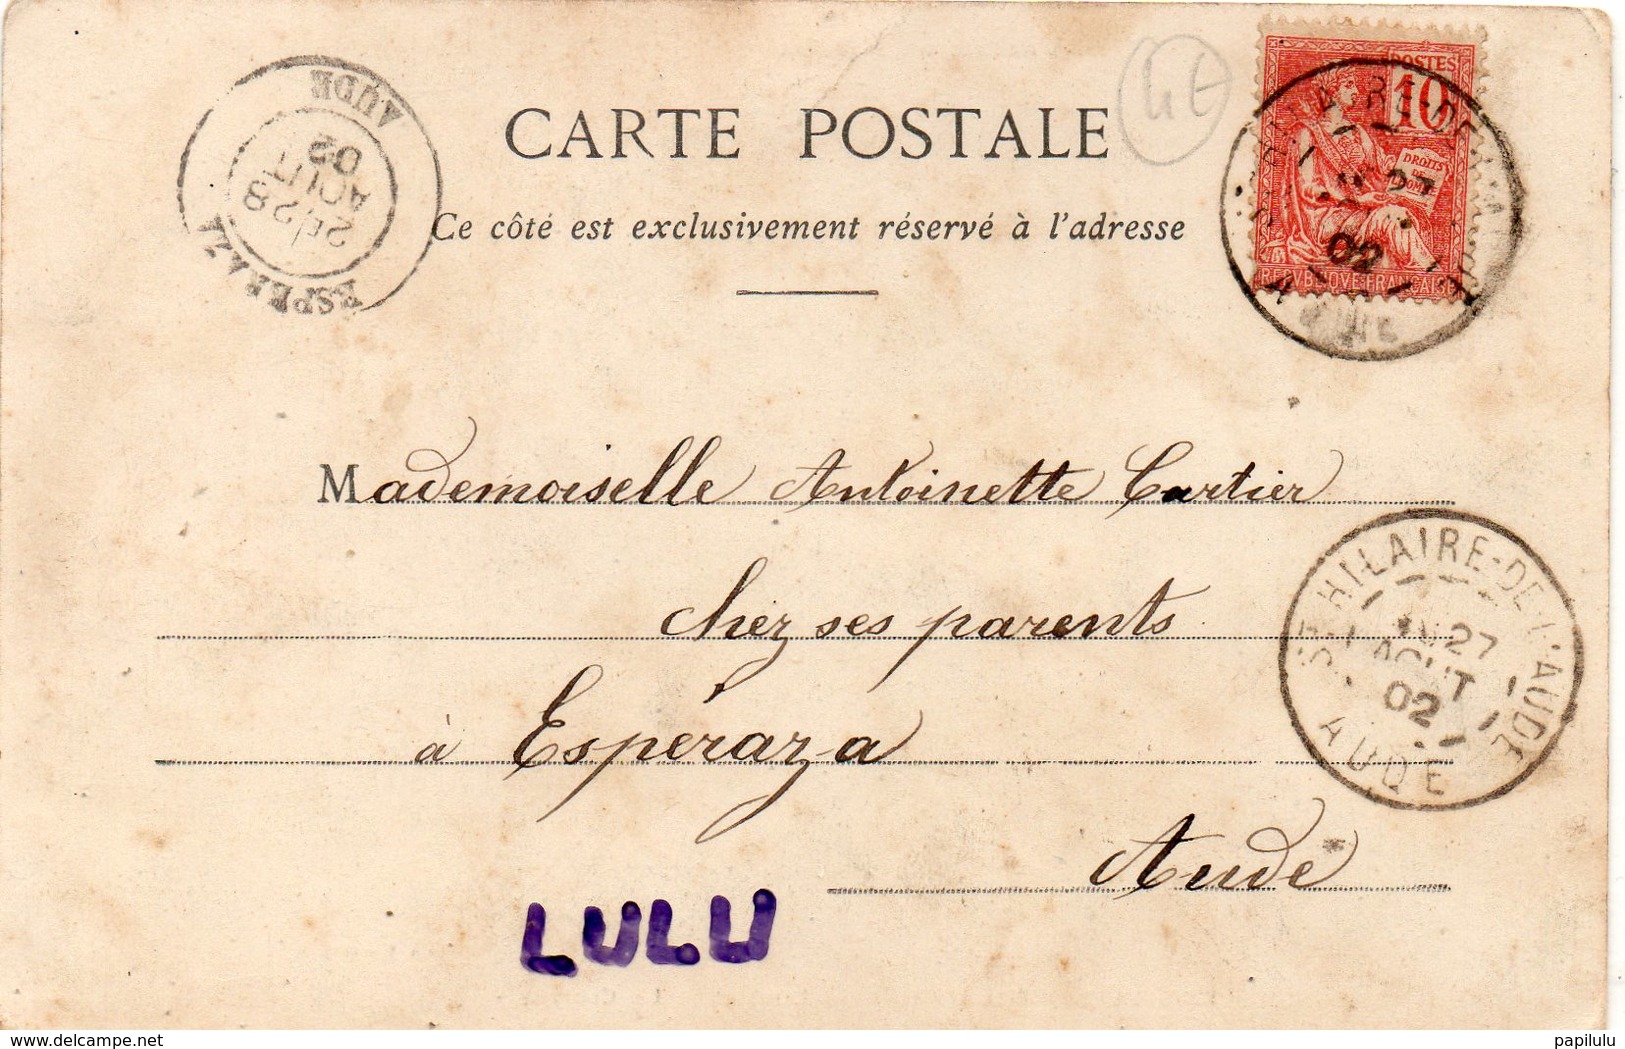 CARTE POSTALE
Ce côté est exclusivement réservé à l'adresse
4€
POSTES
10
DROITS
DE
L'HOMME
REPVBLIQVE FRANÇAISE
27
02
ESPERAZA
2E/28
AOUT
02
AUDE
Mademoiselle Antoinette Cartier
chez ses parents
à Espéraza
Aude
ST HILAIRE-DE-L'AUDE
27
AOUT
02
AUDE
LULU
delcampe.net
papilulu